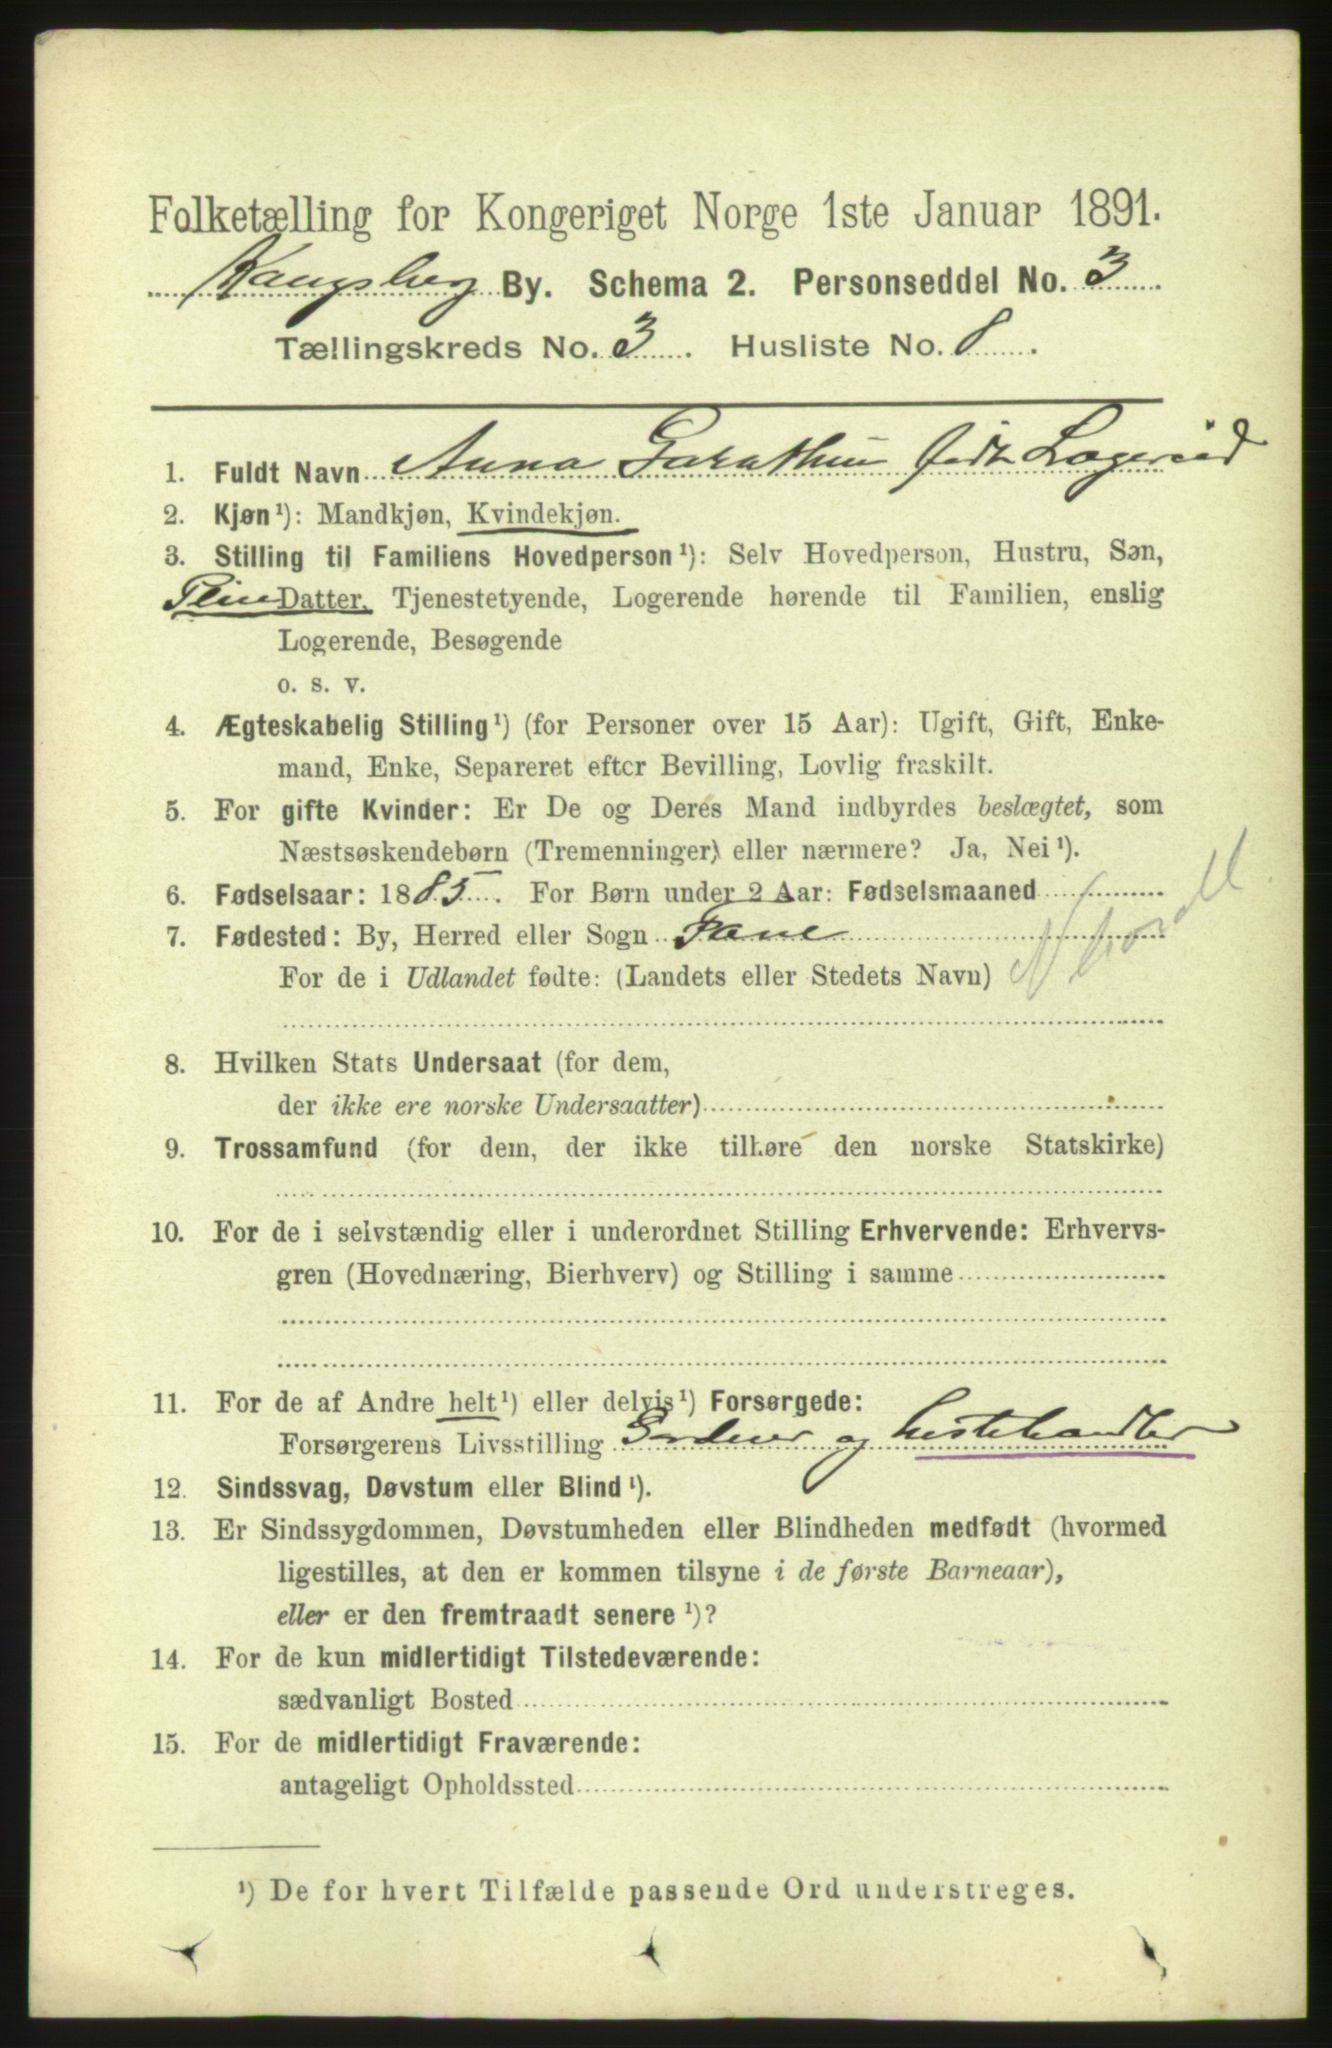 Folketælling for Kongeriget Norge 1ste Januar 1891.
Kongsberg By. Schema 2. Personseddel No. 3
Tællingskreds No. 3. Husliste No. 8.
1. Fuldt Navn Anna født
2. Kjøn ¹): Mandkjøn, Kvindekjøn.
3. Stilling til Familiens Hovedperson ¹): Selv Hovedperson, Hustru, Søn,
Datter, Tjenestetyende, Logerende hørende til Familien, enslig
Logerende, Besøgende
o. s. v.
4. Ægteskabelig Stilling ¹) (for Personer over 15 Aar): Ugift, Gift, Enke-
mand, Enke, Separeret efter Bevilling, Lovlig fraskilt.
5. For gifte Kvinder: Er De og Deres Mand indbyrdes beslægtet, som
Næstsøskendebørn (Tremenninger) eller nærmere? Ja, Nei ¹).
6. Fødselsaar: 1885. For Børn under 2 Aar: Fødselsmaaned
7. Fødested: By, Herred eller Sogn
For de i Udlandet fødte: (Landets eller Stedets Navn)
8. Hvilken Stats Undersaat (for dem,
der ikke ere norske Undersaatter)
9. Trossamfund (for dem, der ikke tilhøre den norske Statskirke)
10. For de i selvstændig eller i underordnet Stilling Erhvervende: Erhvervs-
gren (Hovednæring, Bierhverv) og Stilling i samme
11. For de af Andre helt ¹) eller delvis ¹) Forsørgede:
Forsørgerens Livsstilling og hestehandler
12. Sindssvag, Døvstum eller Blind ¹).
13. Er Sindssygdommen, Døvstumheden eller Blindheden medfødt (hvormed
ligestilles, at den er kommen tilsyne i de første Barneaar),
eller er den fremtraadt senere ¹)?
14. For de kun midlertidigt Tilstedeværende:
sædvanligt Bosted
15. For de midlertidigt Fraværende:
antageligt Opholdssted
¹) De for hvert Tilfælde passende Ord understreges.